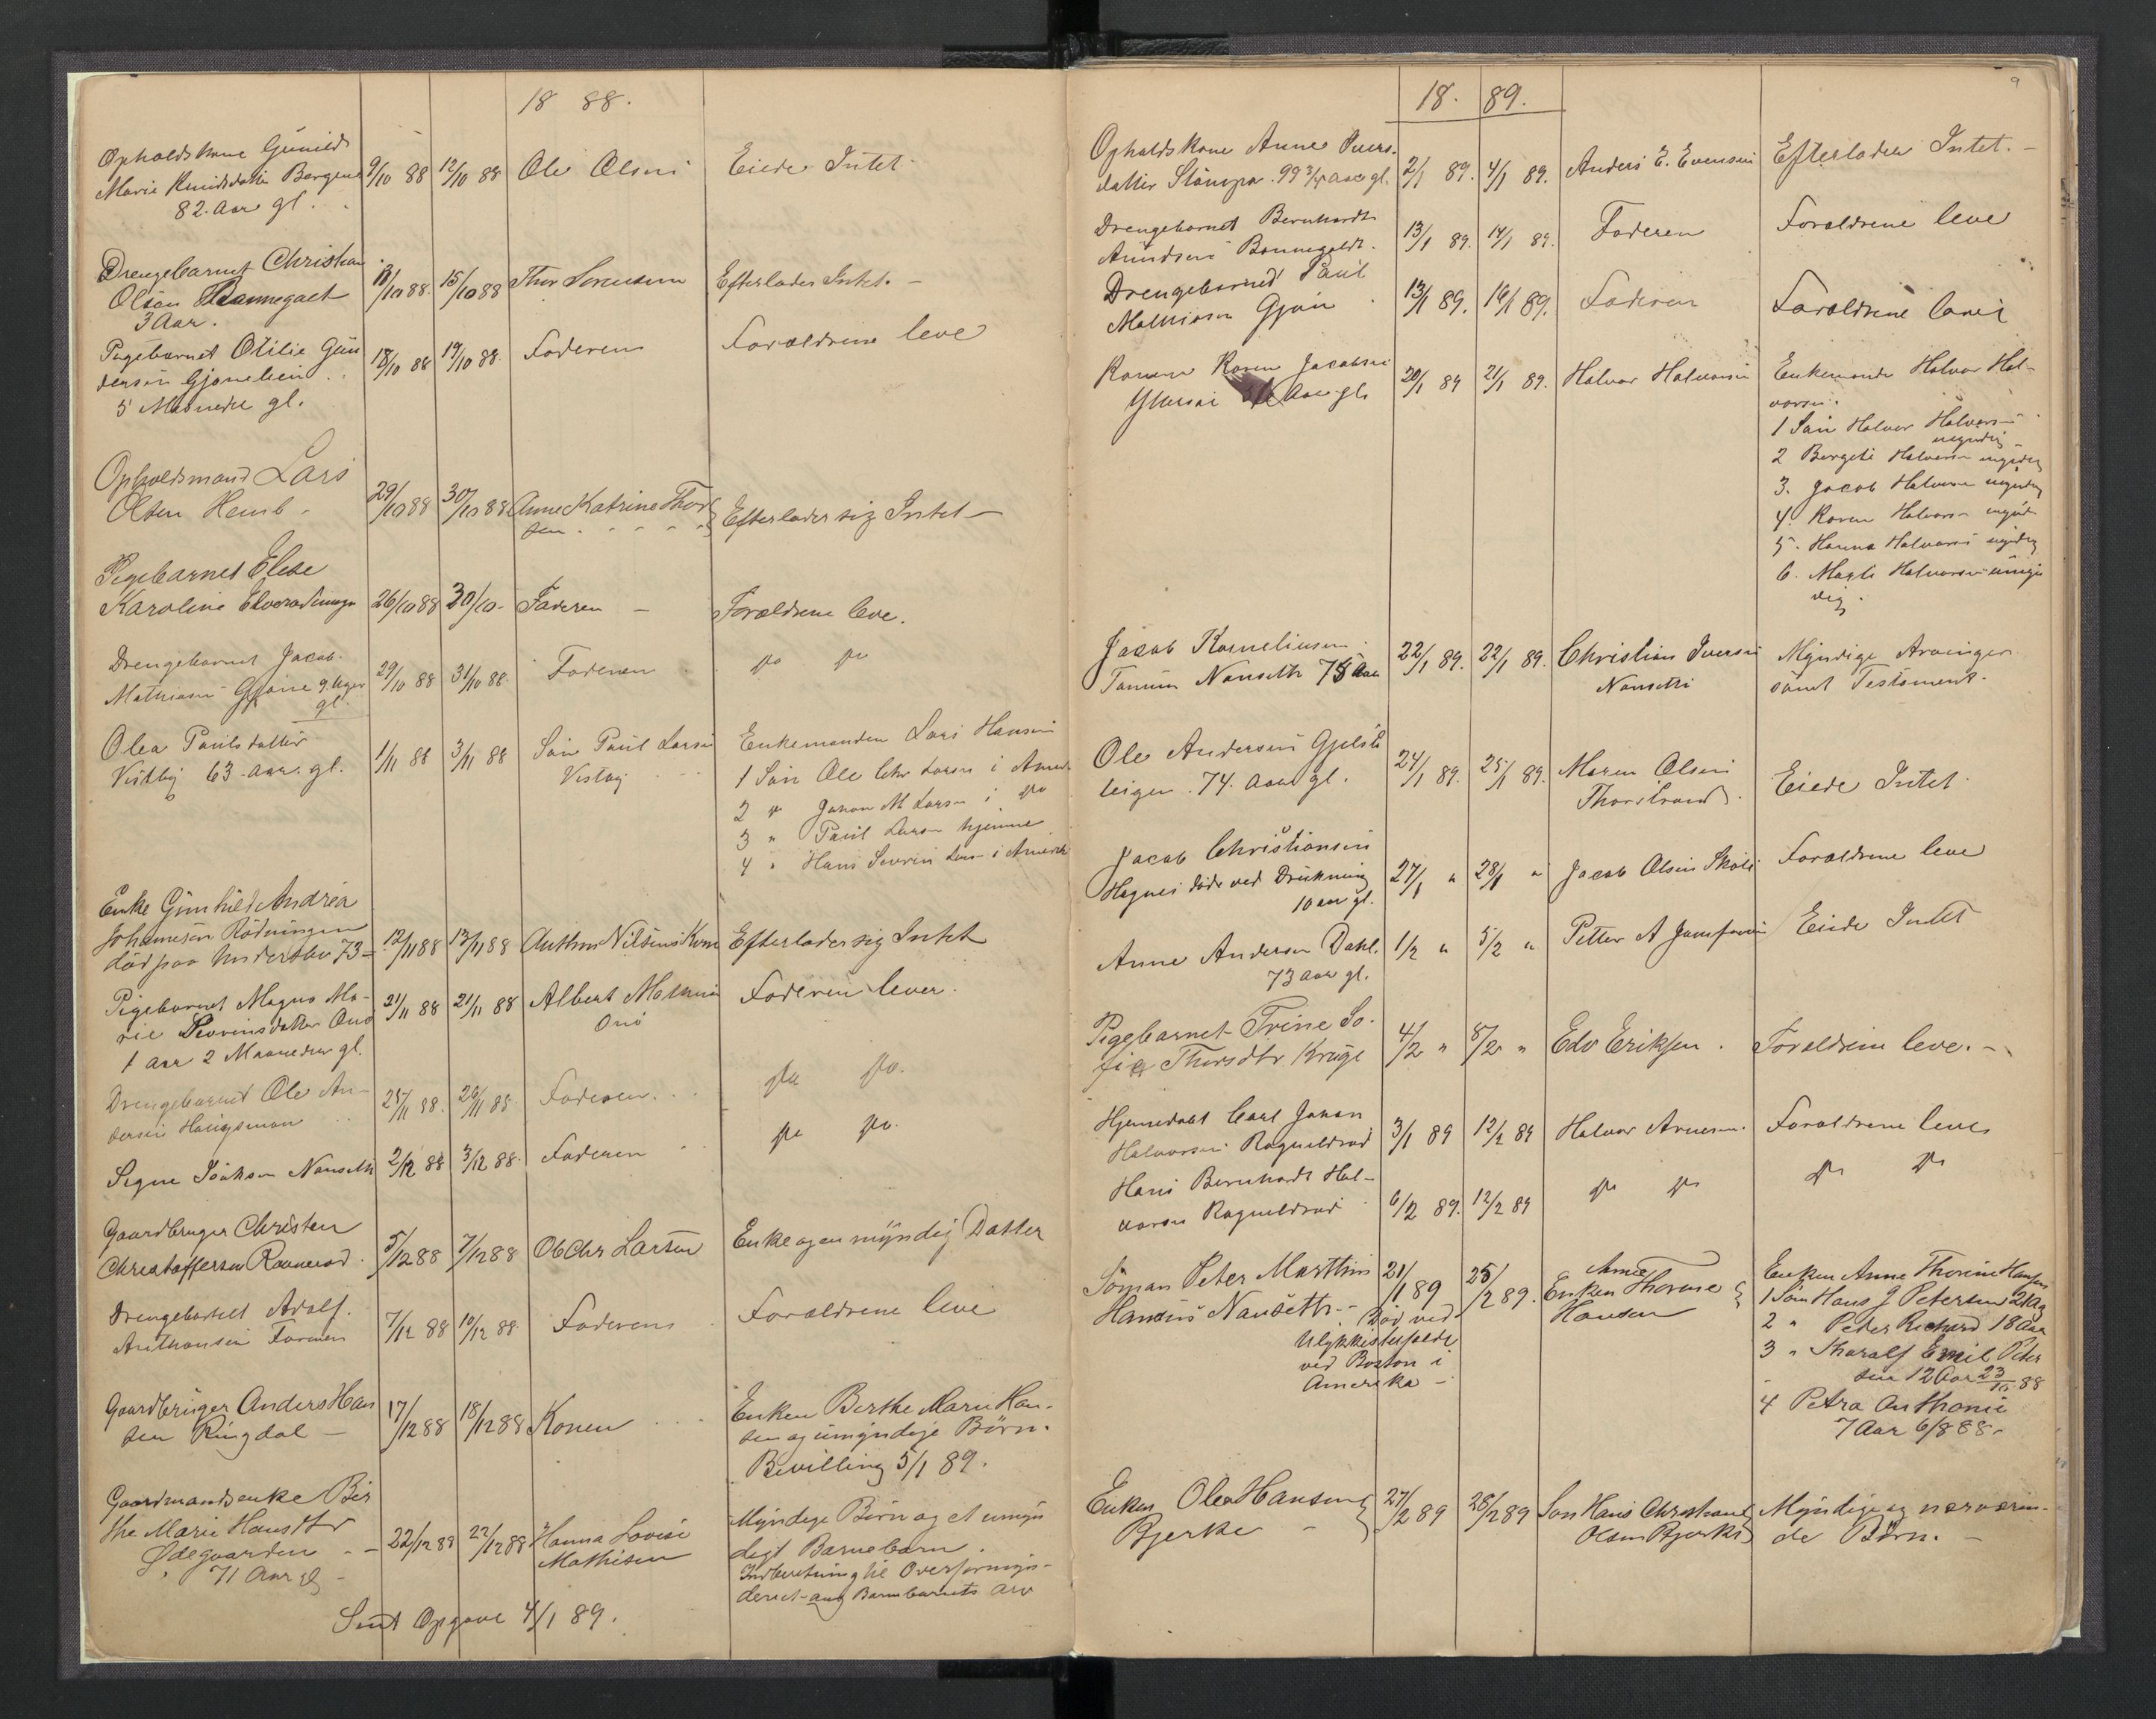 18 88.
Opholdskone Gunild
Marie Knudsdatter Bergene 9/10 88 12/10 88 Ole Olsen Eiede Intet.
82. Aar gl.
Drengebarnet Christian
Olsen Bannegaet /10 88. 15/10 88 Thor Sorensen Efterlader Intet. –
3 Aar.
Pigebarnet Otilie Gun
dersen Gjonebein 18/10 88 19/10 88. Faderen Forældrene leve
5 Maaneder gl.
Opholdsmand Lars
Olsen Hemb – 29/10 88 30/10 88 Anne Katrine Thor Efterlader sig Intet –
sen
Pigebarnet Elese
Karoline 26/10 88 30/10 – Faderen – Forældrene leve.
Drengebarnet Jacob
Mathiasen Gjone 9. Uger 29/10 88 31/10 88. Faderen do do
gl.
Olea Paulsdatter 1/11 88 3/11 88 Sön Paul Larsen Enkemanden Lars Hansen
Vestby 63 Aar. gl. Vestby 1 Sön Ole Chr Larsen i Amerk
2 " Johan M Larsen i do
3 " Paul Larsen hjemme
4 " Hans Severin Larsen i Amerik
Enke Gunhild Andrea
Johannesen Rödningen
död paa Understbo 73 – 12/11 88 13/11 88 Anthon Nilsens Kone Efterlader sig Intet
Pigebarnet Magna Ma-
rie Severinsdatter Onö 21/11 88 21/11 88 Albert Mathisen Faderen lever.
1 Aar 2 Maaneder gl. Onö
Drengebarnet Ole An-
dersen Haugsmoen 25/11 88. 26/11 88. Faderen do do.
Signe Isaksen Nanseth 2/12 88 3/12 88. Faderen do do.
Gaardbruger Christen
Christoffersen Ravnerød 5/12 88 7/12 88 Ol Chr Larsen Enke og en myndig Datter
Drengebarnet Adolf.
Anthonsen Farmen 7/12 88 10/12 88. Faderen Forældrene leve
Gaardbruger Anders Han
sen Ringdal – 17/12 88 18/12 88 Konen Enken Berthe Maren Han-
sen og umyndige Börn.
Bevilling 5/1 89.
Gaardmandsenke Ber
the Marie Hansdtr 22/12 88 22/12 88 Hanna Lovise Myndige Börn og et umyn
Ødegaarden – Mathisen digt Barnebarn.
71 Aar gl – Indberetning til Overformyn-
deriet ang Barnebarnets arv
Sent Opgave 4/1 89.
9
18. 89.
Opholdskone Anne Ivers-
datter Stömpa. 99 3/4 Aar gl. 2/1 89. 4/1 89. Anders E. Evensen Efterlader Intet. –
Drengebarnet Bernhardt
Amundsen Bannegaldt. 13/1 89. 14/1 89. Faderen Forældrene leve
Drengebarnet Paul
Mathiasen Gjone 13/1 89. 16/1 89. Faderen Forældrene leve
Konen Karen Jacobsen 20/1 89 21/1 89. Halvor Halvorsen Enkemand Halvor Hal-
Aar gl. vorsen.
1 Sön Halvor Halvorsen
myndig –
2 Bergete Halvorsen myndig
3. Jacob Halvorsen myndig
4. Karen Halvorsen
5. Hanna Halvorsen
6. Marte Halvorsen umyn
dig.
Jacob Korneliusen 22/1 89. 22/1 89. Christian Iversen Myndige Arvinger
Tanum Nanseth 75 Aar Nanseth samt Testament.
Ole Andersen 24/1 89. 25/1 89. Maren Olsen Eiede Intet
. 74. Aar gl. Thorstrand.
Jacob Christiansen
Hagnes döde ved Drukning 27/1 " 28/1 " Jacob Olsen Forældrene leve
10 aar gl.
Anne Andersen Dahl. 1/2 " 5/2 " Petter A Eiede Intet
73 Aar gl.
Pigebarnet Trine So-
fie Thorsdtr Kruge 4/2 " 8/2 " Edv Eriksen. Forældrene leve. –
Hjemdøbt Carl Johan
Halvorsen Ragnildrød 3/1 89 12/2 89 Halvor Arnesen. Forældrene leve
Hans Bernhardt Hal-
vorsen Ragnildrød 6/2 89. 12/2 89 do do do do
Sömand Peter Martin 21/1 89 25/2 89. Anne Enken Anne Thorine Hansen
Hansen Nanseth – Död ved Enken Thorine 1 Sön Hans J Petersen 21 Aar
Ulykkestilfælde Hansen 2 " Peder Richard 18 Aar
ved Boston i 3 " Tharalf Emil Peter
Amerika – sen 12 Aar 23/10 88
4 Petra Anthonie
7 Aar 6/8 88 –
Enken Olea Hansen 27/2 89 28/2 89 Sön Hans Christian Myndige og nærværen-
Bjerke – Olsen Bjerke de Börn. –